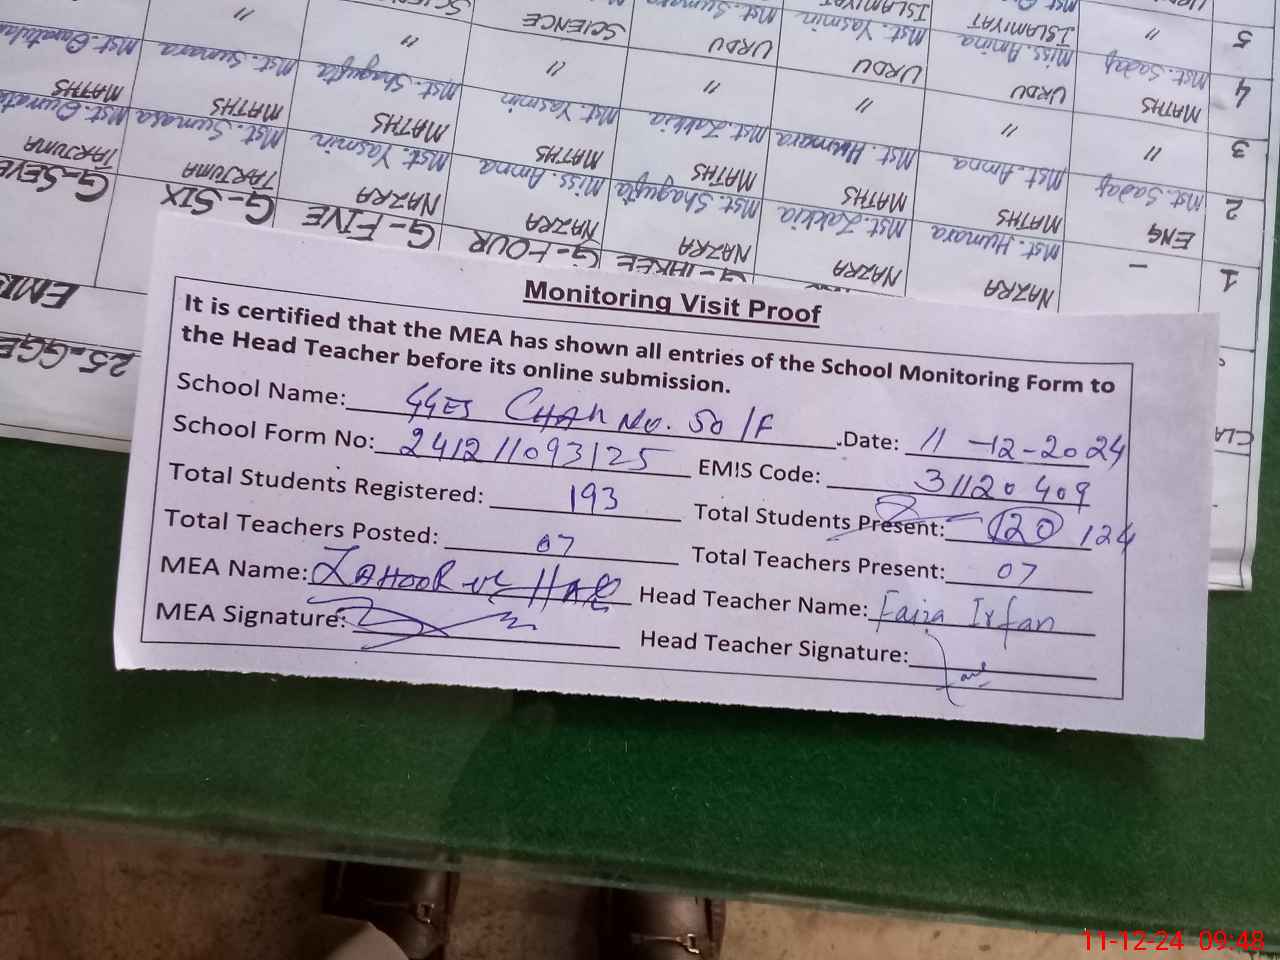 Monitoring Visit Proof
It is certified that the MEA has shown all entries of the School Monitoring Form to
the Head Teacher before its online submission.
School Name: GGES CHAK No. 50/F Date: 11-12-2024
School Form No: 241211093125 EMIS Code: 31120409
Total Students Registered: 193 Total Students Present: 120 124
Total Teachers Posted: 07 Total Teachers Present: 07
MEA Name: ZAHOOR UL HAQ Head Teacher Name: Faiza Irfan
MEA Signature: Head Teacher Signature:
1 2 3 4 5
G-THREE G-FOUR G-FIVE G-SIX
NAZRA NAZRA NAZRA NAZRA NAZRA TARJUMA TARJUMA
Mst. Humara Mst. Zakkia Mst. Shagufta Miss. Amna Mst. Yasmin Mst. Sumara
ENG MATHS MATHS MATHS MATHS MATHS MATHS MATHS
Mst. Sadaf Mst. Amna Mst. Humara Mst. Zakkia Mst. Yasmin Mst. Shagufta Mst. Sumara
" " " " " " "
MATHS URDU URDU URDU SCIENCE
Mst. Sadaf Miss. Amina Mst. Yasmin Mst. Sumara
" ISLAMIYAT ISLAMIYAT
11-12-24 09:48